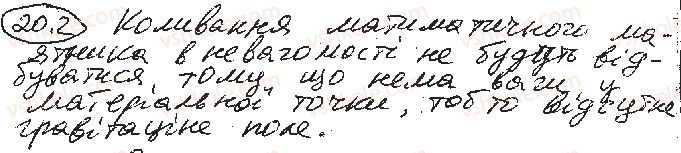 20.2 Коливання матиматичного ма-
ятника в невагомості не будуть від-
буватися, тому що нема ваги у
матеріальної точки, тобто відсутнє
гравітаціне поле.